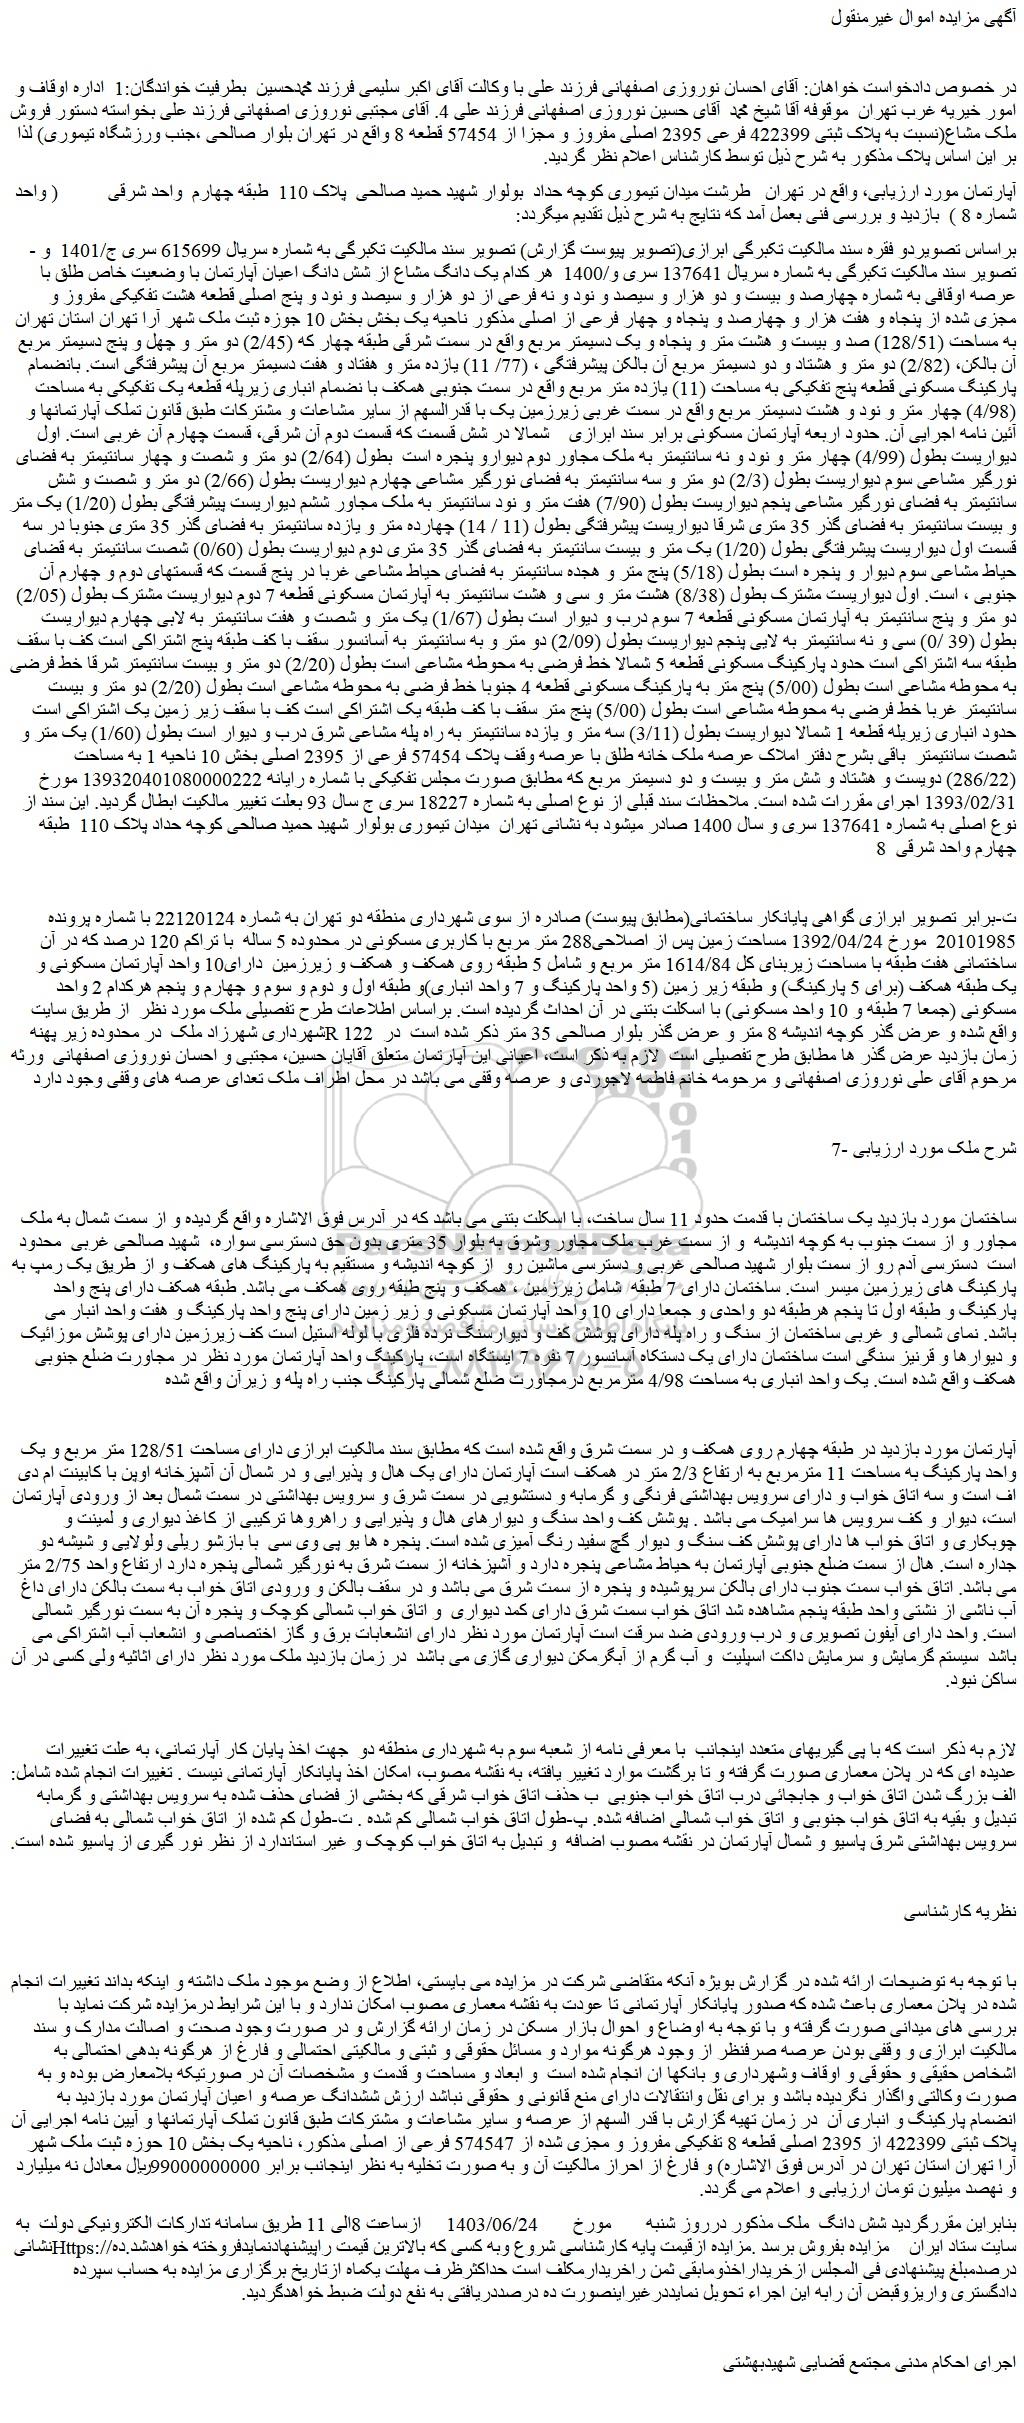 آگهی مزایده اموال غیرمنقول
در خصوص دادخواست خواهان: آقای احسان نوروزی اصفهانی فرزند علی با وکالت آقای اکبر سلیمی فرزند محمدحسین بطرفیت خواندگان:1 اداره اوقاف و
امور خیریه غرب تهران موقوفه آقا شیخ محمد آقای حسین نوروزی اصفهانی فرزند علی 4. آقای مجتبی نوروزی اصفهانی فرزند علی بخواسته دستور فروش
ملک مشاع(نسبت به پلاک ثبتی 422399 فرعی 2395 اصلی مفروز و مجزا از 57454 قطعه 8 واقع در تهران بلوار صالحی ،جنب ورزشگاه تیموری) لذا
بر این اساس پلاک مذکور به شرح ذیل توسط کارشناس اعلام نظر گردید.
آپارتمان مورد ارزیابی، واقع در تهران طرشت میدان تیموری کوچه حداد بولوار شهید حمید صالحی پلاک 110 طبقه چهارم واحد شرقی ( واحد
شماره 8 ) بازدید و بررسی فنی بعمل آمد که نتایج به شرح ذیل تقدیم میگردد:
براساس تصویردو فقره سند مالکیت تکبرگی ابرازی(تصویر پیوست گزارش) تصویر سند مالکیت تکبرگی به شماره سریال 615699 سری ج/1401 و -
تصویر سند مالکیت تکبرگی به شماره سریال 137641 سری و/1400 هر کدام یک دانگ مشاع از شش دانگ اعیان آپارتمان با وضعیت خاص طلق با
عرصه اوقافی به شماره چهارصد و بیست و دو هزار و سیصد و نود و نه فرعی از دو هزار و سیصد و نود و پنج اصلی قطعه هشت تفکیکی مفروز و
مجزی شده از پنجاه و هفت هزار و چهارصد و پنجاه و چهار فرعی از اصلی مذکور ناحیه یک بخش بخش 10 جوزه ثبت ملک شهر آرا تهران استان تهران
به مساحت (128/51) صد و بیست و هشت متر و پنجاه و یک دسیمتر مربع واقع در سمت شرقی طبقه چهار که (2/45) دو متر و چهل و پنج دسیمتر مربع
آن بالکن، (2/82) دو متر و هشتاد و دو دسیمتر مربع آن بالکن پیشرفتگی ، (77/ 11) یازده متر و هفتاد و هفت دسیمتر مربع آن پیشرفتگی است. بانضمام
پارکینگ مسکونی قطعه پنج تفکیکی به مساحت (11) یازده متر مربع واقع در سمت جنوبی همکف با نضمام انباری زیرپله قطعه یک تفکیکی به مساحت
(4/98) چهار متر و نود و هشت دسیمتر مربع واقع در سمت غربی زیرزمین یک با قدرالسهم از سایر مشاعات و مشترکات طبق قانون تملک آپارتمانها و
آئین نامه اجرایی آن. حدود اربعه آپارتمان مسکونی برابر سند ابرازی شمالا در شش قسمت که قسمت دوم آن شرقی، قسمت چهارم آن غربی است. اول
دیواریست بطول (4/99) چهار متر و نود و نه سانتیمتر به ملک مجاور دوم دیوارو پنجره است بطول (2/64) دو متر و شصت و چهار سانتیمتر به فضای
نورگیر مشاعی سوم دیواریست بطول (2/3) دو متر و سه سانتیمتر به فضای نورگیر مشاعی چهارم دیواریست بطول (2/66) دو متر و شصت و شش
سانتیمتر به فضای نورگیر مشاعی پنجم دیواریست بطول (7/90) هفت متر و نود سانتیمتر به ملک مجاور ششم دیواریست پیشرفتگی بطول (1/20) یک متر
و بیست سانتیمتر به فضای گذر 35 متری شرقا دیواریست پیشرفتگی بطول (11 / 14) چهارده متر و یازده سانتیمتر به فضای گذر 35 متری جنوبا در سه
قسمت اول دیواریست پیشرفتگی بطول (1/20) یک متر و بیست سانتیمتر به فضای گذر 35 متری دوم دیواریست بطول (0/60) شصت سانتیمتر به قضای
حیاط مشاعی سوم دیوار و پنجره است بطول (5/18) پنج متر و هجده سانتیمتر به فضای حیاط مشاعی غربا در پنج قسمت که قسمتهای دوم و چهارم آن
جنوبی ، است. اول دیواریست مشترک بطول (8/38) هشت متر و سی و هشت سانتیمتر به آپارتمان مسکونی قطعه 7 دوم دیواریست مشترک بطول (2/05)
دو متر و پنج سانتیمتر به آپارتمان مسکونی قطعه 7 سوم درب و دیوار است بطول (1/67) یک متر و شصت و هفت سانتیمتر به لابی چهارم دیواریست
بطول (39 /0) سی و نه سانتیمتر به لابی پنجم دیواریست بطول (2/09) دو متر و به سانتیمتر به آسانسور سقف با کف طبقه پنج اشتراکی است کف با سقف
طبقه سه اشتراکی است حدود پارکینگ مسکونی قطعه 5 شمالا خط فرضی به محوطه مشاعی است بطول (2/20) دو متر و بیست سانتیمتر شرقا خط فرضی
به محوطه مشاعی است بطول (5/00) پنج متر به پارکینگ مسکونی قطعه 4 جنوبا خط فرضی به محوطه مشاعی است بطول (2/20) دو متر و بیست
سانتیمتر غربا خط فرضی به محوطه مشاعی است بطول (5/00) پنج متر سقف با کف طبقه یک اشتراکی است کف با سقف زیر زمین یک اشتراکی است
حدود انباری زیرپله قطعه 1 شمالا دیواریست بطول (3/11) سه متر و یازده سانتیمتر به راه پله مشاعی شرق درب و دیوار است بطول (1/60) یک متر و
شصت سانتیمتر باقی بشرح دفتر املاک عرصه ملک خانه طلق با عرصه وقف پلاک 57454 فرعی از 2395 اصلی بخش 10 ناحیه 1 به مساحت
(286/22) دویست و هشتاد و شش متر و بیست و دو دسیمتر مربع که مطابق صورت مجلس تفکیکی با شماره رایانه 139320401080000222 مورخ
1393/02/31 اجرای مقررات شده است. ملاحظات سند قبلی از نوع اصلی به شماره 18227 سری ج سال 93 بعلت تغییر مالکیت ابطال گردید. این سند از
نوع اصلی به شماره 137641 سری و سال 1400 صادر میشود به نشانی تهران میدان تیموری بولوار شهید حمید صالحی کوچه حداد پلاک 110 طبقه
چهارم واحد شرقی 8
ت-برابر تصویر ابرازی گواهی پایانکار ساختمانی(مطابق پیوست) صادره از سوی شهرداری منطقه دو تهران به شماره 22120124 با شماره پرونده
20101985 مورخ 1392/04/24 مساحت زمین پس از اصلاحی288 متر مربع با کاربری مسکونی در محدوده 5 ساله با تراکم 120 درصد که در آن
ساختمانی هفت طبقه با مساحت زیربنای کل 1614/84 متر مربع و شامل 5 طبقه روی همکف و همکف و زیرزمین دارای10 واحد آپارتمان مسکونی و
یک طبقه همکف (برای 5 پارکینگ) و طبقه زیر زمین (5 واحد پارکینگ و 7 واحد انباری)و طبقه اول و دوم و سوم و چهارم و پنجم هرکدام 2 واحد
مسکونی (جمعا 7 طبقه و 10 واحد مسکونی) با اسکلت بتنی در آن احداث گردیده است. براساس اطلاعات طرح تفصیلی ملک مورد نظر از طریق سایت
واقع شده و عرض گذر کوچه اندیشه 8 متر و عرض گذر بلوار صالحی 35 متر ذکر شده است در R 122شهرداری شهرزاد ملک در محدوده زیر پهنه
زمان بازدید عرض گذر ها مطابق طرح تفصیلی است لازم به ذکر است، اعیانی این آپارتمان متعلق آقایان حسین، مجتبی و احسان نوروزی اصفهانی ورثه
مرحوم آقای علی نوروزی اصفهانی و مرحومه خانم فاطمه لاجوردی و عرصه وقفی می باشد در محل اطراف ملک تعدای عرصه های وقفی وجود دارد
شرح ملک مورد ارزیابی -7
ساختمان مورد بازدید یک ساختمان با قدمت حدود 11 سال ساخت، با اسکلت بتنی می باشد که در آدرس فوق الاشاره واقع گردیده و از سمت شمال به ملک
مجاور و از سمت جنوب به کوچه اندیشه و از سمت غرب ملک مجاور وشرق به بلوار 35 متری بدون حق دسترسی سواره، شهید صالحی غربی محدود
است دسترسی آدم رو از سمت بلوار شهید صالحی غربی و دسترسی ماشین رو از کوچه اندیشه و مستقیم به پارکینگ های همکف و از طریق یک رمپ به
پارکینگ های زیرزمین میسر است. ساختمان دارای 7 طبقه، شامل زیرزمین ، همکف و پنج طبقه روی همکف می باشد. طبقه همکف دارای پنج واحد
پارکینگ و طبقه اول تا پنجم هرطبقه دو واحدی و جمعا دارای 10 واحد آپارتمان مسکونی و زیر زمین دارای پنج واحد پارکینگ و هفت واحد انبار می
باشد. نمای شمالی و غربی ساختمان از سنگ و راه پله دارای پوشش کف و دیوارسنگ نرده فلزی با لوله استیل است کف زیرزمین دارای پوشش موزائیک
و دیوارها و قرنیز سنگی است ساختمان دارای یک دستگاه آسانسور 7 نفره 7 ایستگاه است، پارکینگ واحد آپارتمان مورد نظر در مجاورت ضلع جنوبی
همکف واقع شده است. یک واحد انباری به مساحت 4/98 مترمربع درمجاورت ضلع شمالی پارکینگ جنب راه پله و زیرآن واقع شده
آپارتمان مورد بازدید در طبقه چهارم روی همکف و در سمت شرق واقع شده است که مطابق سند مالکیت ابرازی دارای مساحت 128/51 متر مربع و یک
واحد پارکینگ به مساحت 11 مترمربع به ارتفاع 2/3 متر در همکف است آپارتمان دارای یک هال و پذیرایی و در شمال آن آشپزخانه اوپن با کابینت ام دی
اف است و سه اتاق خواب و دارای سرویس بهداشتی فرنگی و گرمابه و دستشویی در سمت شرق و سرویس بهداشتی در سمت شمال بعد از ورودی آپارتمان
است، دیوار و کف سرویس ها سرامیک می باشد . پوشش کف واحد سنگ و دیوارهای هال و پذیرایی و راهروها ترکیبی از کاغذ دیواری و لمینت و
چوبکاری و اتاق خواب ها دارای پوشش کف سنگ و دیوار گچ سفید رنگ آمیزی شده است. پنجره ها یو پی وی سی با بازشو ریلی ولولایی و شیشه دو
جداره است. هال از سمت ضلع جنوبی آپارتمان به حیاط مشاعی پنجره دارد و آشپزخانه از سمت شرق به نورگیر شمالی پنجره دارد ارتفاع واحد 2/75 متر
می باشد. اتاق خواب سمت جنوب دارای بالکن سرپوشیده و پنجره از سمت شرق می باشد و در سقف بالکن و ورودی اتاق خواب به سمت بالکن دارای داغ
آب ناشی از نشتی واحد طبقه پنجم مشاهده شد اتاق خواب سمت شرق دارای کمد دیواری و اتاق خواب شمالی کوچک و پنجره آن به سمت نورگیر شمالی
است. واحد دارای آیفون تصویری و درب ورودی ضد سرقت است آپارتمان مورد نظر دارای انشعابات برق و گاز اختصاصی و انشعاب آب اشتراکی می
باشد سیستم گرمایش و سرمایش داکت اسپلیت و آب گرم از آبگرمکن دیواری گازی می باشد در زمان بازدید ملک مورد نظر دارای اثاثیه ولی کسی در آن
ساکن نبود.
لازم به ذکر است که با پی گیریهای متعدد اینجانب با معرفی نامه از شعبه سوم به شهرداری منطقه دو جهت اخذ پایان کار آپارتمانی، به علت تغییرات
عدیده ای که در پلان معماری صورت گرفته و تا برگشت موارد تغییر یافته، به نقشه مصوب، امکان اخذ پایانکار آپارتمانی نیست . تغییرات انجام شده شامل:
الف بزرگ شدن اتاق خواب و جابجائی درب اتاق خواب جنوبی ب حذف اتاق خواب شرقی که بخشی از فضای حذف شده به سرویس بهداشتی و گرمابه
تبدیل و بقیه به اتاق خواب جنوبی و اتاق خواب شمالی اضافه شده. پ-طول اتاق خواب شمالی کم شده . ت-طول کم شده از اتاق خواب شمالی به فضای
سرویس بهداشتی شرق پاسیو و شمال آپارتمان در نقشه مصوب اضافه و تبدیل به اتاق خواب کوچک و غیر استاندارد از نظر نور گیری از پاسیو شده است.
نظریه کارشناسی
با توجه به توضیحات ارائه شده در گزارش بویژه آنکه متقاضی شرکت در مزایده می بایستی، اطلاع از وضع موجود ملک داشته و اینکه بداند تغییرات انجام
شده در پلان معماری باعث شده که صدور پایانکار آپارتمانی تا عودت به نقشه معماری مصوب امکان ندارد و با این شرایط درمزایده شرکت نماید با
بررسی های میدانی صورت گرفته و با توجه به اوضاع و احوال بازار مسکن در زمان ارائه گزارش و در صورت وجود صحت و اصالت مدارک و سند
مالکیت ابرازی و وقفی بودن عرصه صرفنظر از وجود هرگونه موارد و مسائل حقوقی و ثبتی و مالکیتی احتمالی و فارغ از هرگونه بدهی احتمالی به
اشخاص حقیقی و حقوقی و اوقاف وشهرداری و بانکها ان انجام شده است و ابعاد و مساحت و قدمت و مشخصات آن در صورتیکه بلامعارض بوده و به
صورت وکالتی واگذار نگردیده باشد و برای نقل وانتقالات دارای منع قانونی و حقوقی نباشد ارزش ششدانگ عرصه و اعیان آپارتمان مورد بازدید به
انضمام پارکینگ و انباری آن در زمان تهیه گزارش با قدر السهم از عرصه و سایر مشاعات و مشترکات طبق قانون تملک آپارتمانها و آیین نامه اجرایی آن
پلاک ثبتی 422399 از 2395 اصلی قطعه 8 تفکیکی مفروز و مجزی شده از 574547 فرعی از اصلی مذکور، ناحیه یک بخش 10 حوزه ثبت ملک شهر
آرا تهران استان تهران در آدرس فوق الاشاره) و فارغ از احراز مالکیت آن و به صورت تخلیه به نظر اینجانب برابر 99000000000ریال معادل نه میلیارد
و نهصد میلیون تومان ارزیابی و اعلام می گردد.
بنابراین مقررگردید شش دانگ ملک مذکور درروز شنبه مورخ 1403/06/24 ازساعت 8الی 11 طریق سامانه تدارکات الکترونیکی دولت به
سایت ستاد ایران مزایده بفروش برسد .مزایده ازقیمت پایه کارشناسی شروع وبه کسی که بالاترین قیمت راپیشنهادنمایدفروخته خواهدشد.ده//:Httpsنشانی
درصدمبلغ پیشنهادی فی المجلس ازخریداراخذومابقی ثمن راخریدارمکلف است حداکثرظرف مهلت یکماه ازتاریخ برگزاری مزایده به حساب سپرده
دادگستری واریزوقبض آن رابه این اجراء تحویل نمایددرغیراینصورت ده درصددریافتی به نفع دولت ضبط خواهدگردید.
اجرای احکام مدنی مجتمع قضایی شهیدبهشتی